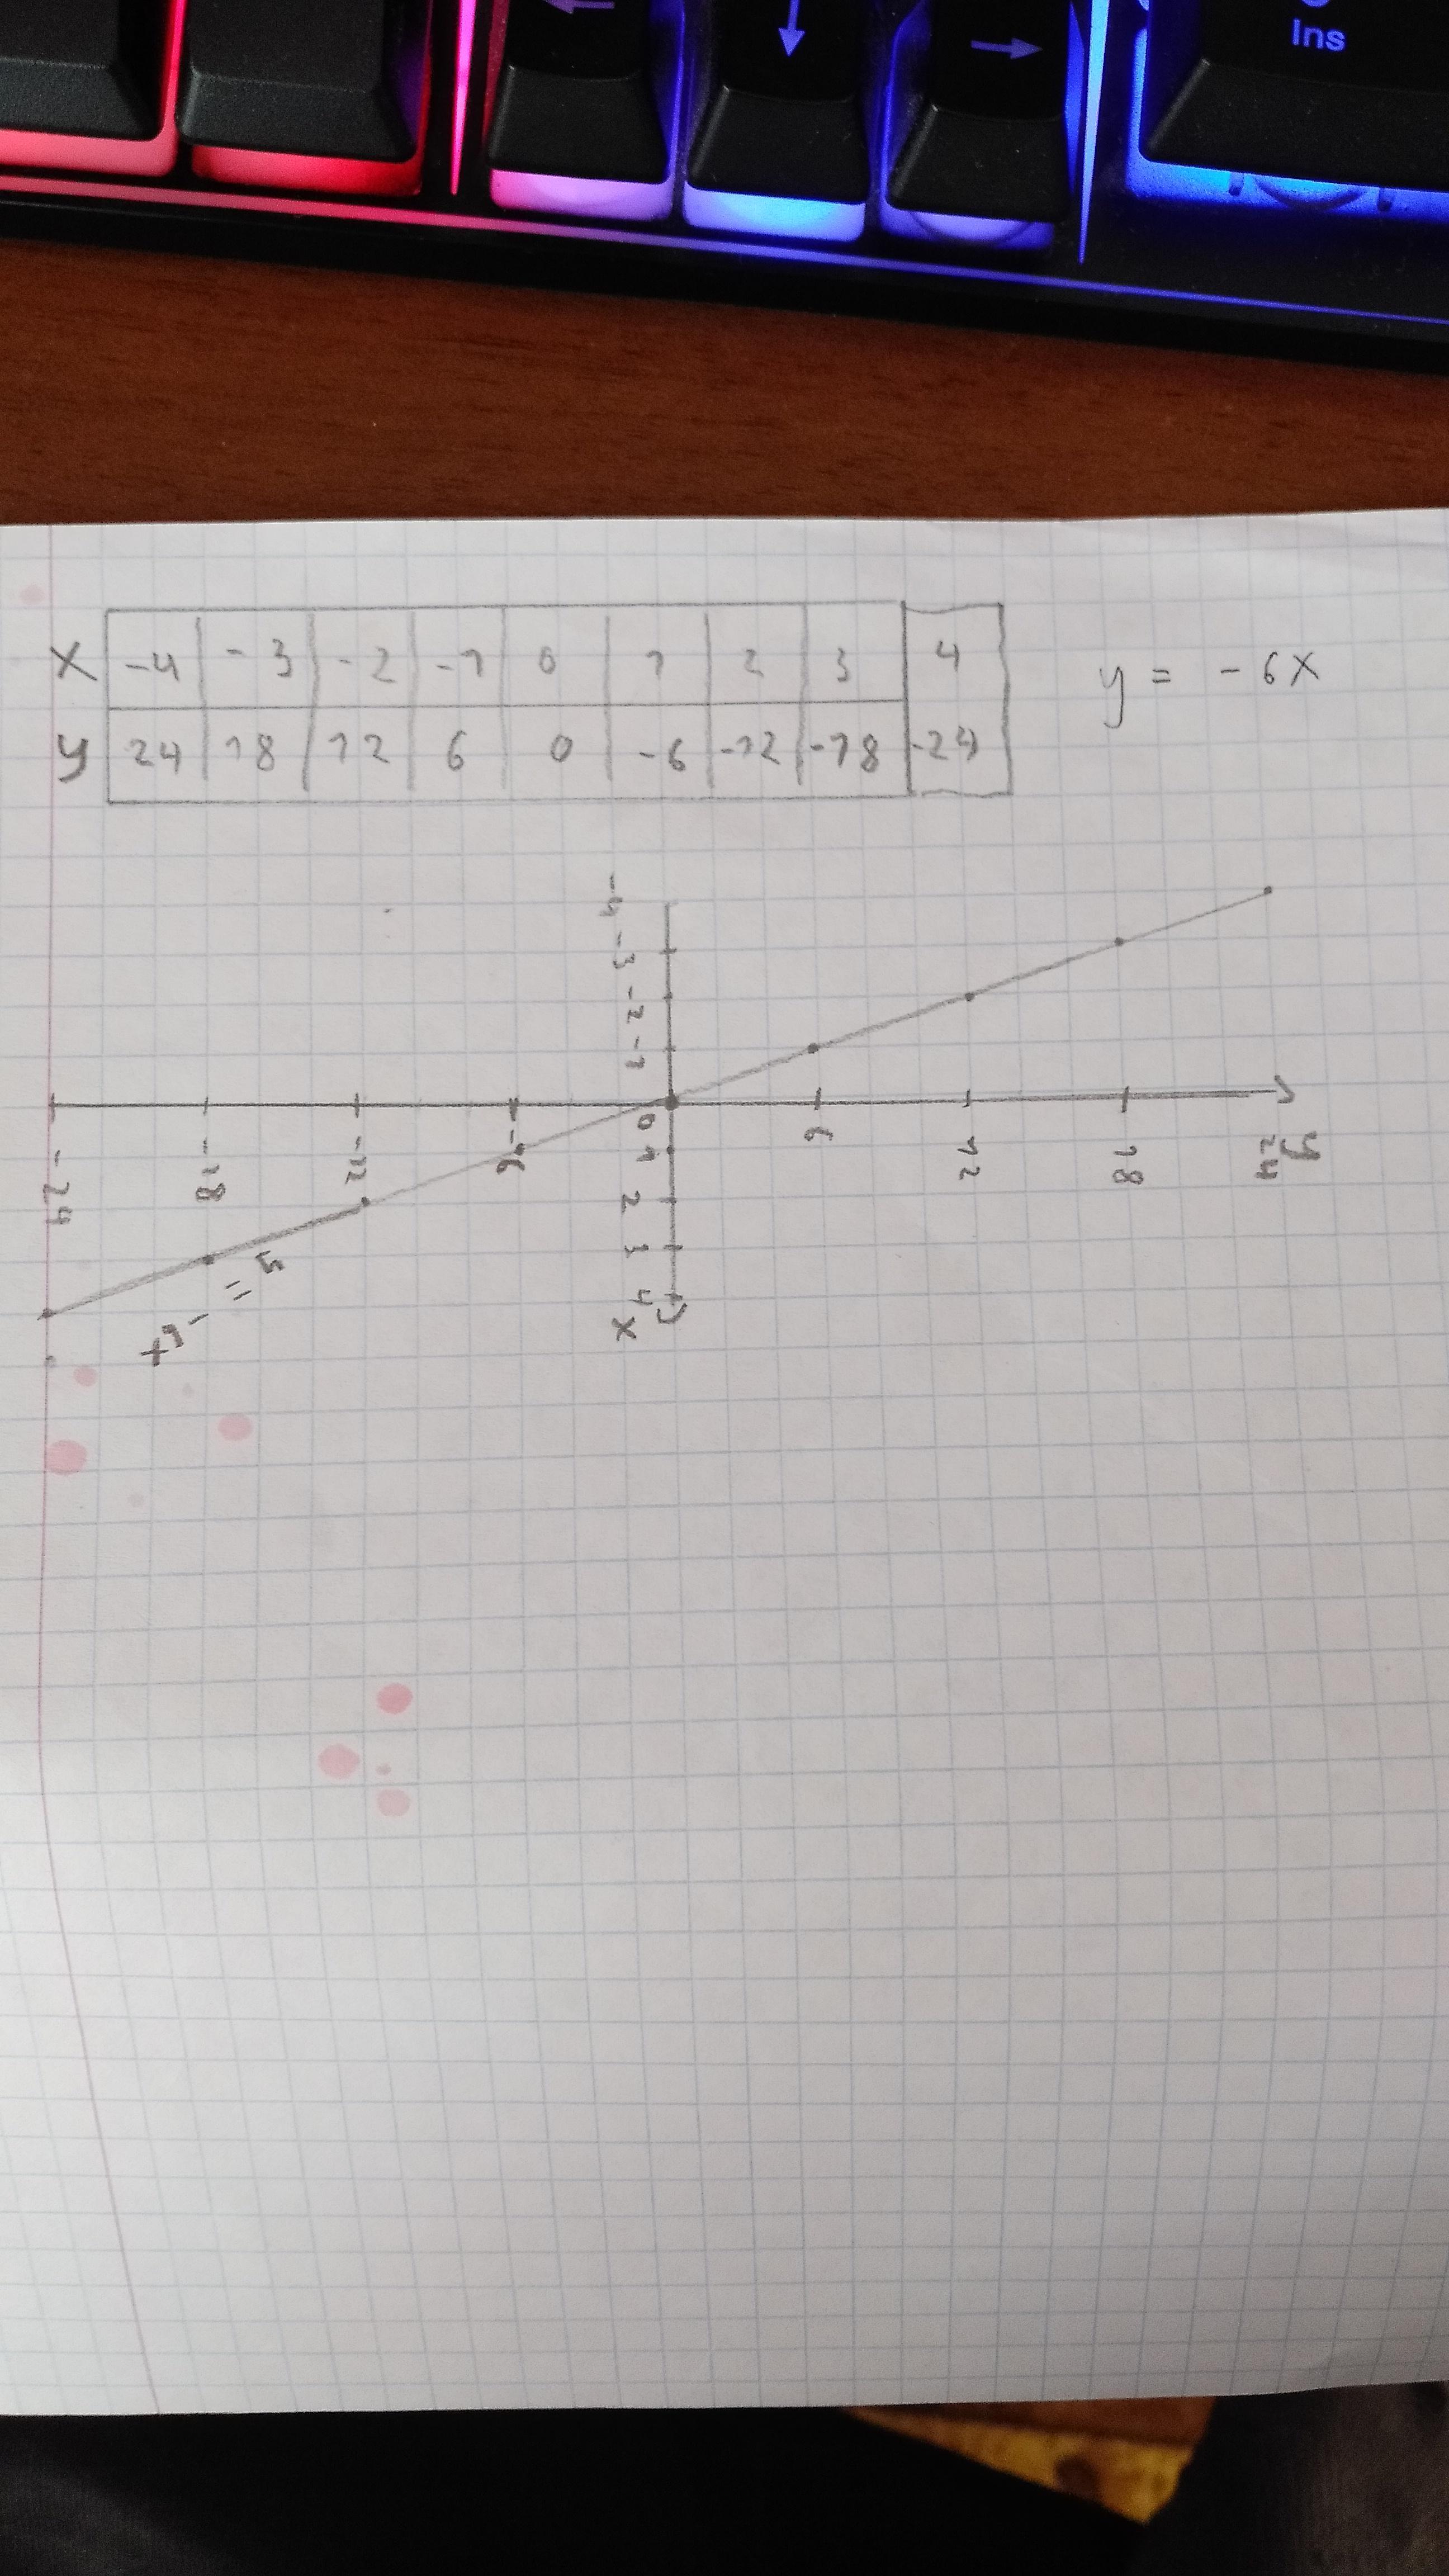 Ins
x -4 -3 -2 -1 0 1 2 3 4
y 24 18 12 6 0 -6 -12 -18 -24
y = -6x
-4
-3
-2
-1
0
1
2
3
4
x
-24 -18 -12 -6 6 12 18 24 y
y = -6x